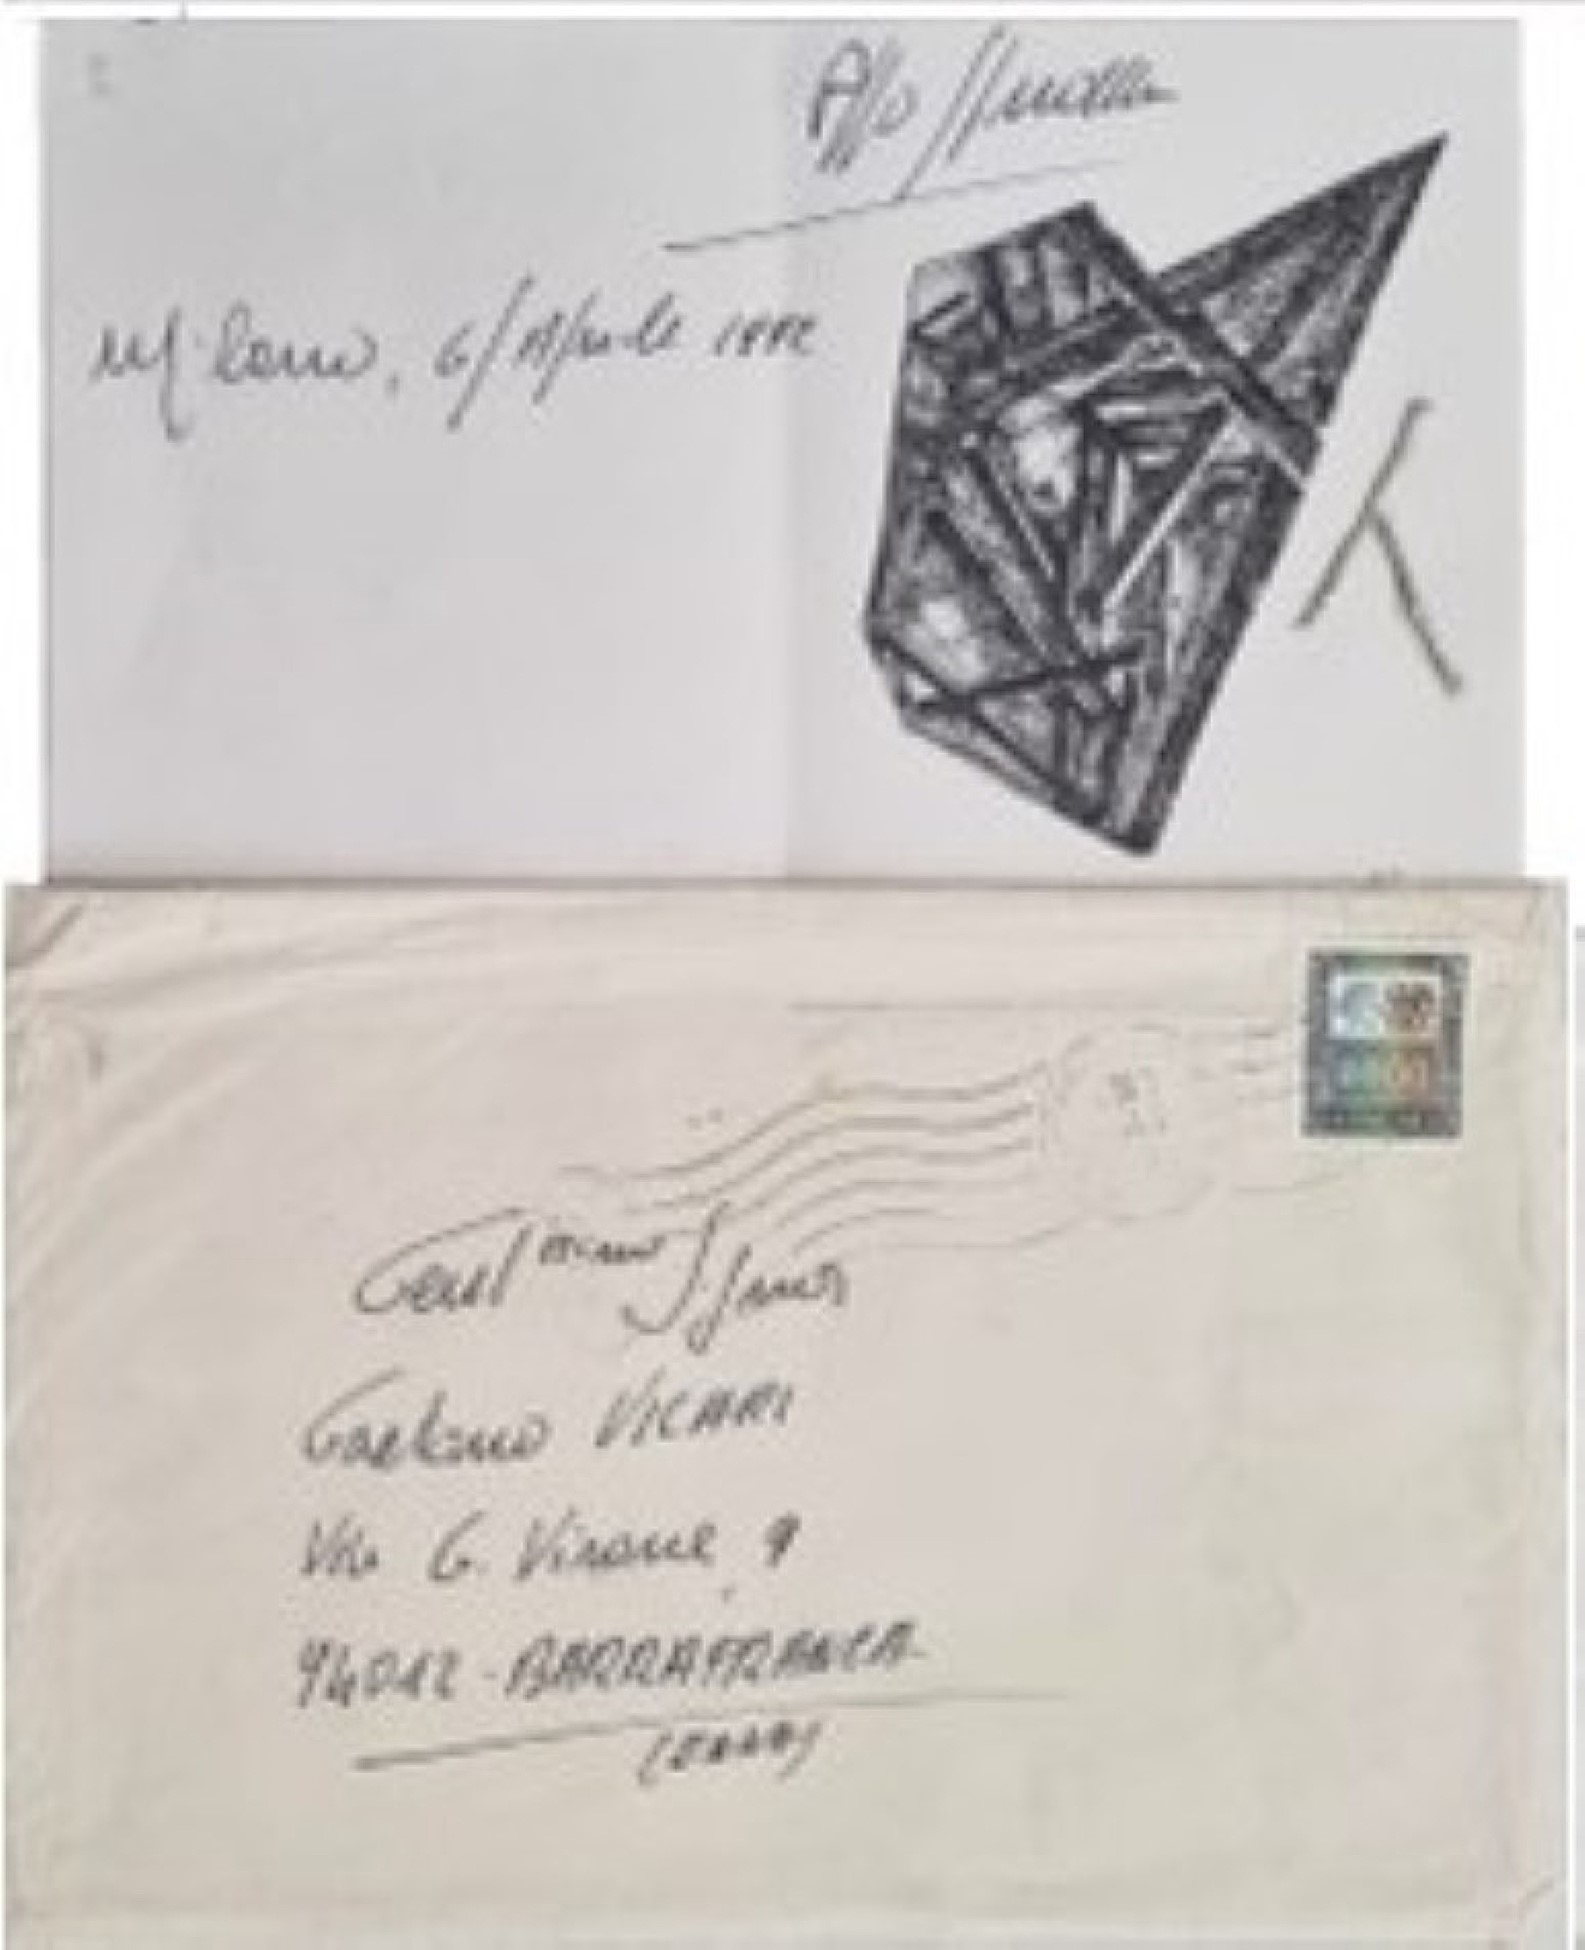 Milano, 6/Aprile 1992
Gent.mo Signor
Gaetano VICARI
Via G. Verone, 9
94012 - BARRAFRANCA
(ENNA)